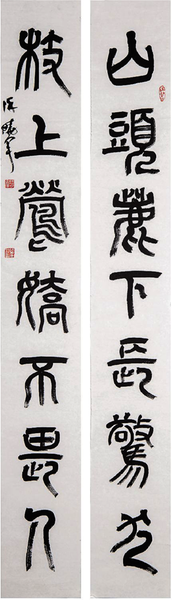 山頭鹿下長驚犬
枝上鶯嬌不畏人